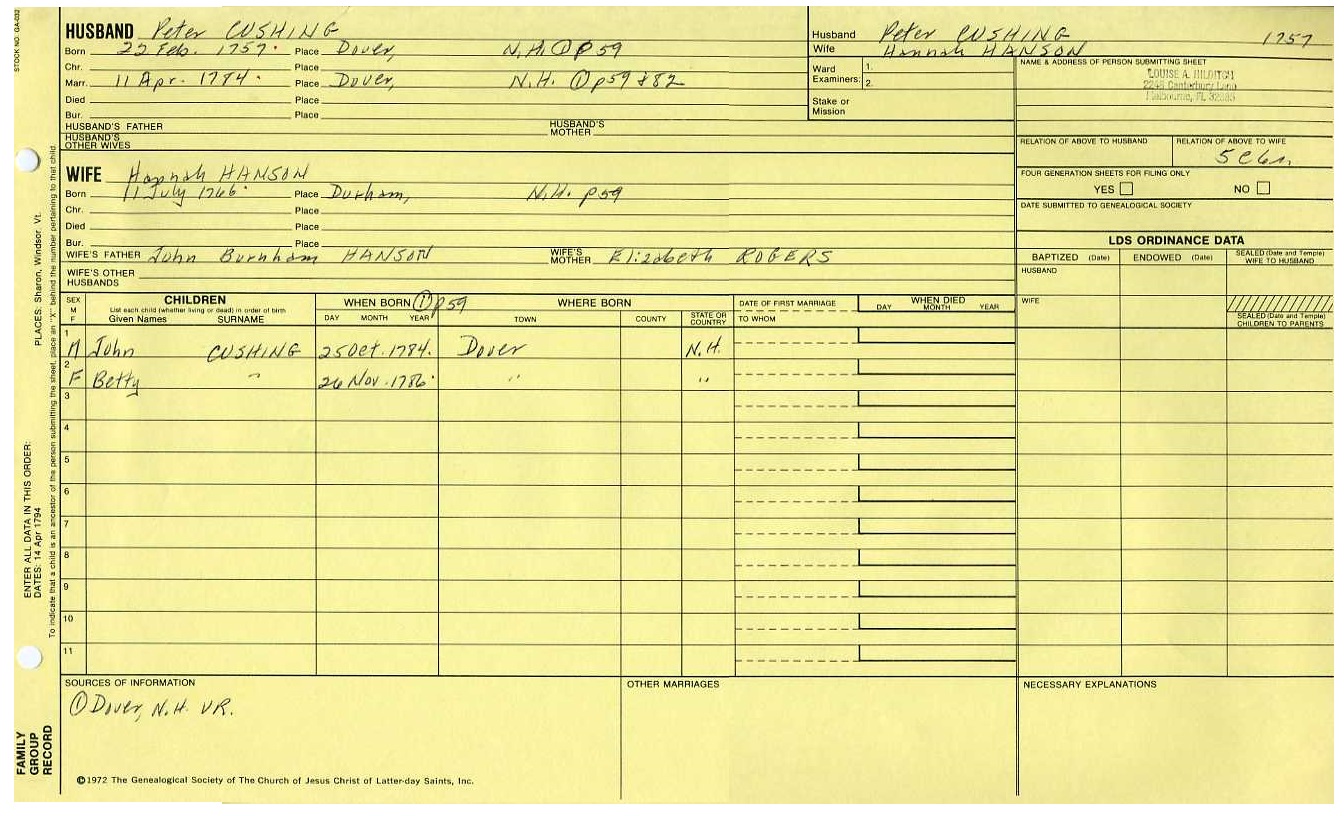 STOCK NO. GA-032
HUSBAND Peter CUSHING
Born 22 Feb. 1757 Place Dover, N.H. ① p 59
Chr. Place
Marr. 11 Apr. 1784 Place Dover, N.H. ① p59 & 82
Died Place
Bur. Place
HUSBAND'S FATHER HUSBAND'S MOTHER
HUSBAND'S OTHER WIVES
Husband Peter CUSHING 1757
Wife Hannah HANSON
Ward Examiners: 1. 2.
Stake or Mission
NAME & ADDRESS OF PERSON SUBMITTING SHEET
LOUISE A. HILDITCH
Canterbury Lane
Melbourne, FL
RELATION OF ABOVE TO HUSBAND RELATION OF ABOVE TO WIFE
FOUR GENERATION SHEETS FOR FILING ONLY
YES NO
DATE SUBMITTED TO GENEALOGICAL SOCIETY
WIFE Hannah HANSON
Born 11 July 1766 Place Durham, N.H. p59
Chr. Place
Died Place
Bur. Place
WIFE'S FATHER John Burnham HANSON WIFE'S MOTHER Elizabeth ROGERS
WIFE'S OTHER HUSBANDS
LDS ORDINANCE DATA
BAPTIZED (Date) ENDOWED (Date) SEALED (Date and Temple) WIFE TO HUSBAND
HUSBAND
WIFE
SEALED (Date and Temple) CHILDREN TO PARENTS
SEX M F CHILDREN WHEN BORN ① p59 WHERE BORN DATE OF FIRST MARRIAGE WHEN DIED
List each child (whether living or dead) in order of birth
Given Names SURNAME DAY MONTH YEAR TOWN COUNTY STATE OR COUNTRY TO WHOM DAY MONTH YEAR
1 M John CUSHING 25 Oct. 1784. Dover N.H.
2 F Betty " 26 Nov. 1786 " "
3
4
5
6
7
8
9
10
11
SOURCES OF INFORMATION OTHER MARRIAGES NECESSARY EXPLANATIONS
① Dover, N.H. VR.
©1972 The Genealogical Society of The Church of Jesus Christ of Latter-day Saints, Inc.
FAMILY GROUP RECORD
ENTER ALL DATA IN THIS ORDER:
DATES: 14 Apr 1794 PLACES: Sharon, Windsor, Vt.
To indicate that a child is an ancestor of the person submitting the sheet, place an "X" behind the number pertaining to that child.